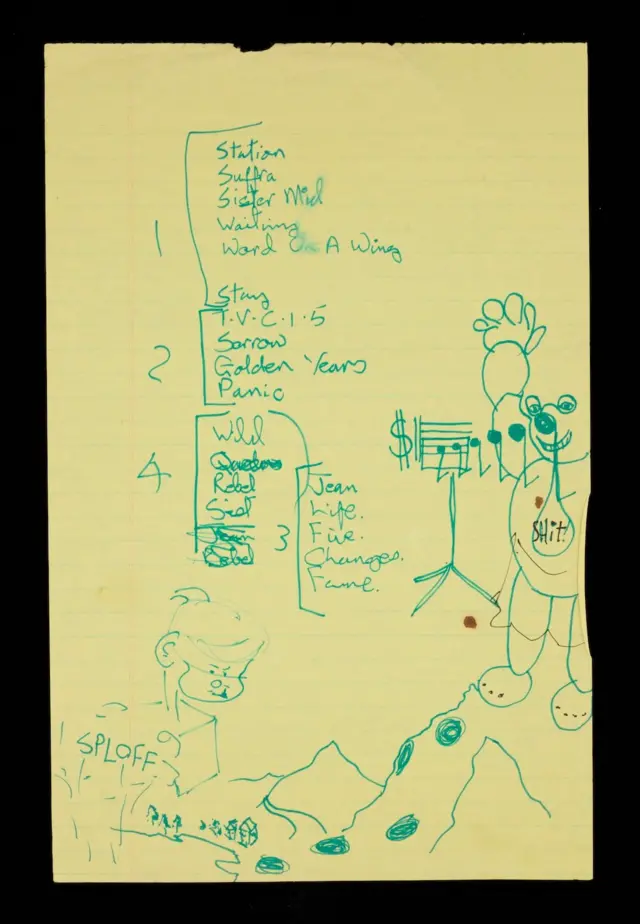 1
Station
Suffra
Sister Mid
Waiting
Word On A Wing
Stay
2
T.V.C.1.5
Sorrow
Golden Years
Panic
4
Wild
Rebel
3
Jean
Life.
Five.
Changes.
Fame.
$
SHit!
SPLOFF